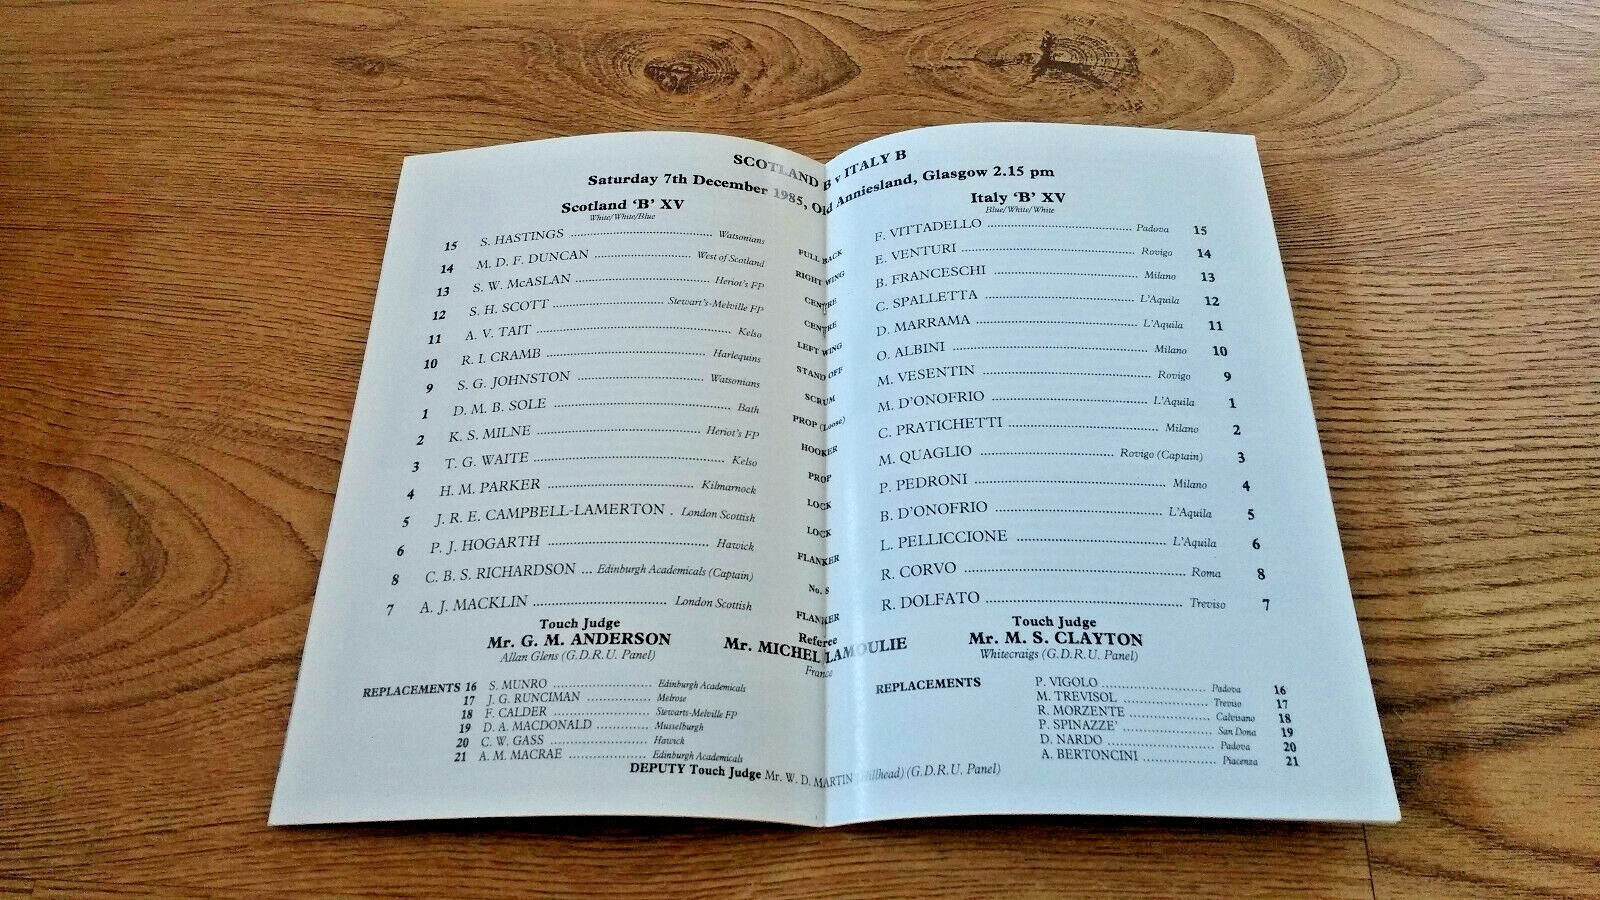 SCOTLAND B v ITALY B
Saturday 7th December 1985, Old Anniesland, Glasgow 2.15 pm
Scotland 'B' XV
White/White/Blue
Italy 'B' XV
Blue/White/White
15 S. HASTINGS Watsonians FULL BACK F. VITTADELLO Padova 15
14 M. D. F. DUNCAN West of Scotland RIGHT WING E. VENTURI Rovigo 14
13 S. W. McASLAN Heriot's FP CENTRE B. FRANCESCHI Milano 13
12 S. H. SCOTT Stewart's-Melville FP CENTRE C. SPALLETTA L'Aquila 12
11 A. V. TAIT Kelso LEFT WING D. MARRAMA L'Aquila 11
10 R. I. CRAMB Harlequins STAND OFF O. ALBINI Milano 10
9 S. G. JOHNSTON Watsonians SCRUM M. VESENTIN Rovigo 9
1 D. M. B. SOLE Bath PROP (Loose) M. D'ONOFRIO L'Aquila 1
2 K. S. MILNE Heriot's FP HOOKER C. PRATICHETTI Milano 2
3 T. G. WAITE Kelso PROP M. QUAGLIO Rovigo (Captain) 3
4 H. M. PARKER Kilmarnock LOCK P. PEDRONI Milano 4
5 J. R. E. CAMPBELL-LAMERTON . London Scottish LOCK B. D'ONOFRIO L'Aquila 5
6 P. J. HOGARTH Hawick FLANKER L. PELLICCIONE L'Aquila 6
8 C. B. S. RICHARDSON ... Edinburgh Academicals (Captain) No. 8 R. CORVO Roma 8
7 A. J. MACKLIN London Scottish FLANKER R. DOLFATO Treviso 7
Touch Judge
Mr. G. M. ANDERSON
Allan Glens (G.D.R.U. Panel)
Referee
Mr. MICHEL LAMOULIE
France
Touch Judge
Mr. M. S. CLAYTON
Whitecraigs (G.D.R.U. Panel)
REPLACEMENTS 16 S. MUNRO Edinburgh Academicals
17 J. G. RUNCIMAN Melrose
18 F. CALDER Stewarts-Melville FP
19 D. A. MACDONALD Musselburgh
20 C. W. GASS Hawick
21 A. M. MACRAE Edinburgh Academicals
REPLACEMENTS P. VIGOLO Padova 16
M. TREVISOL Treviso 17
R. MORZENTE Calvisano 18
P. SPINAZZE' San Dona 19
D. NARDO Padova 20
A. BERTONCINI Piacenza 21
DEPUTY Touch Judge Mr. W. D. MARTIN (Hillhead) (G.D.R.U. Panel)